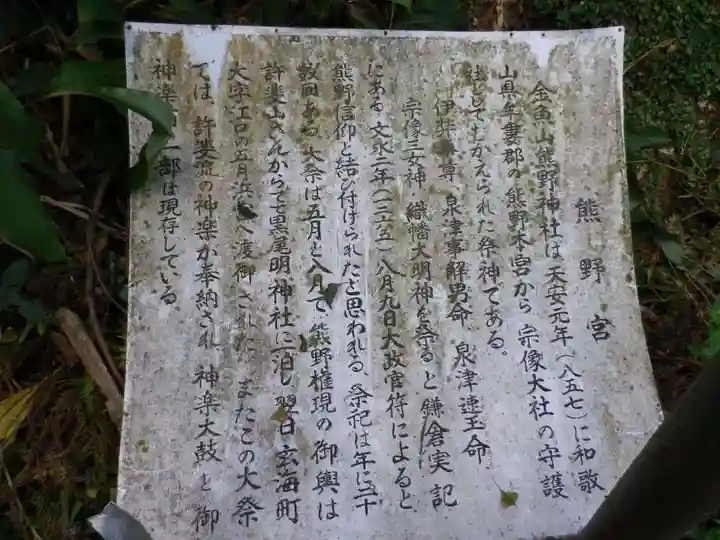 熊野宮
金魚山熊野神社は天安元年(八五七)に和歌
山県牟婁郡の熊野本宮から宗像大社の守護
社としてむかえられた祭神である。
「伊弉 尊、泉津事解男命、泉津速玉命
宗像三女神、織幡大明神を祭ると鎌倉実記
にある 文永二年(一二六五)八月九日大政官符によると
熊野信仰と結び付けられたと思われる、祭祀は年に二十
数回あり、大祭は五月と八月で、熊野権現の御輿は
許斐山さんからでて黒尾明神社に一泊し翌日玄海町
大字江口の五月浜 へ渡御された。またこの大祭
では、許斐 の神楽が奉納され、神楽太鼓と御
神楽 一部は現存している。